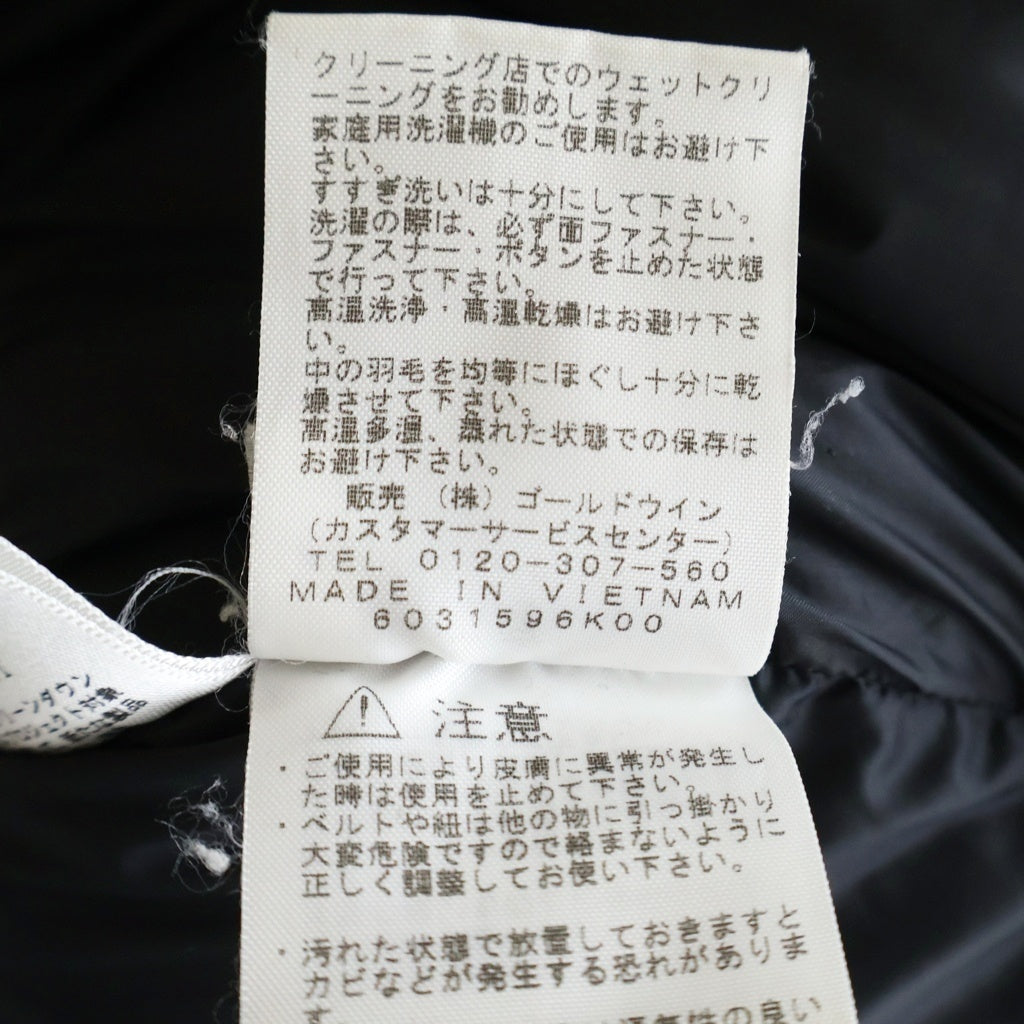 クリーニング店でのウェットクリ
ーニングをお勧めします。
家庭用洗濯機のご使用はお避け下
さい。
すすぎ洗いは十分にして下さい。
洗濯の際は、必ず面ファスナー・
ファスナー・ボタンを止めた状態
で行って下さい。
高温洗浄・高温乾燥はお避け下さ
い。
中の羽毛を均等にほぐし十分に乾
燥させて下さい。
高温多湿、蒸れた状態での保存は
お避け下さい。
販売 (株) ゴールドウイン
(カスタマーサービスセンター)
TEL 0120-307-560
MADE IN VIETNAM
6031596K00
注意
・ご使用により皮膚に異常が発生し
た時は使用を止めて下さい。
・ベルトや紐は他の物に引っ掛かり
大変危険ですので絡まないように
正しく調整してお使い下さい。
・汚れた状態で放置しておきますと
カビなどが発生する恐れがありま
す。
通気性の良い
リーンダウン